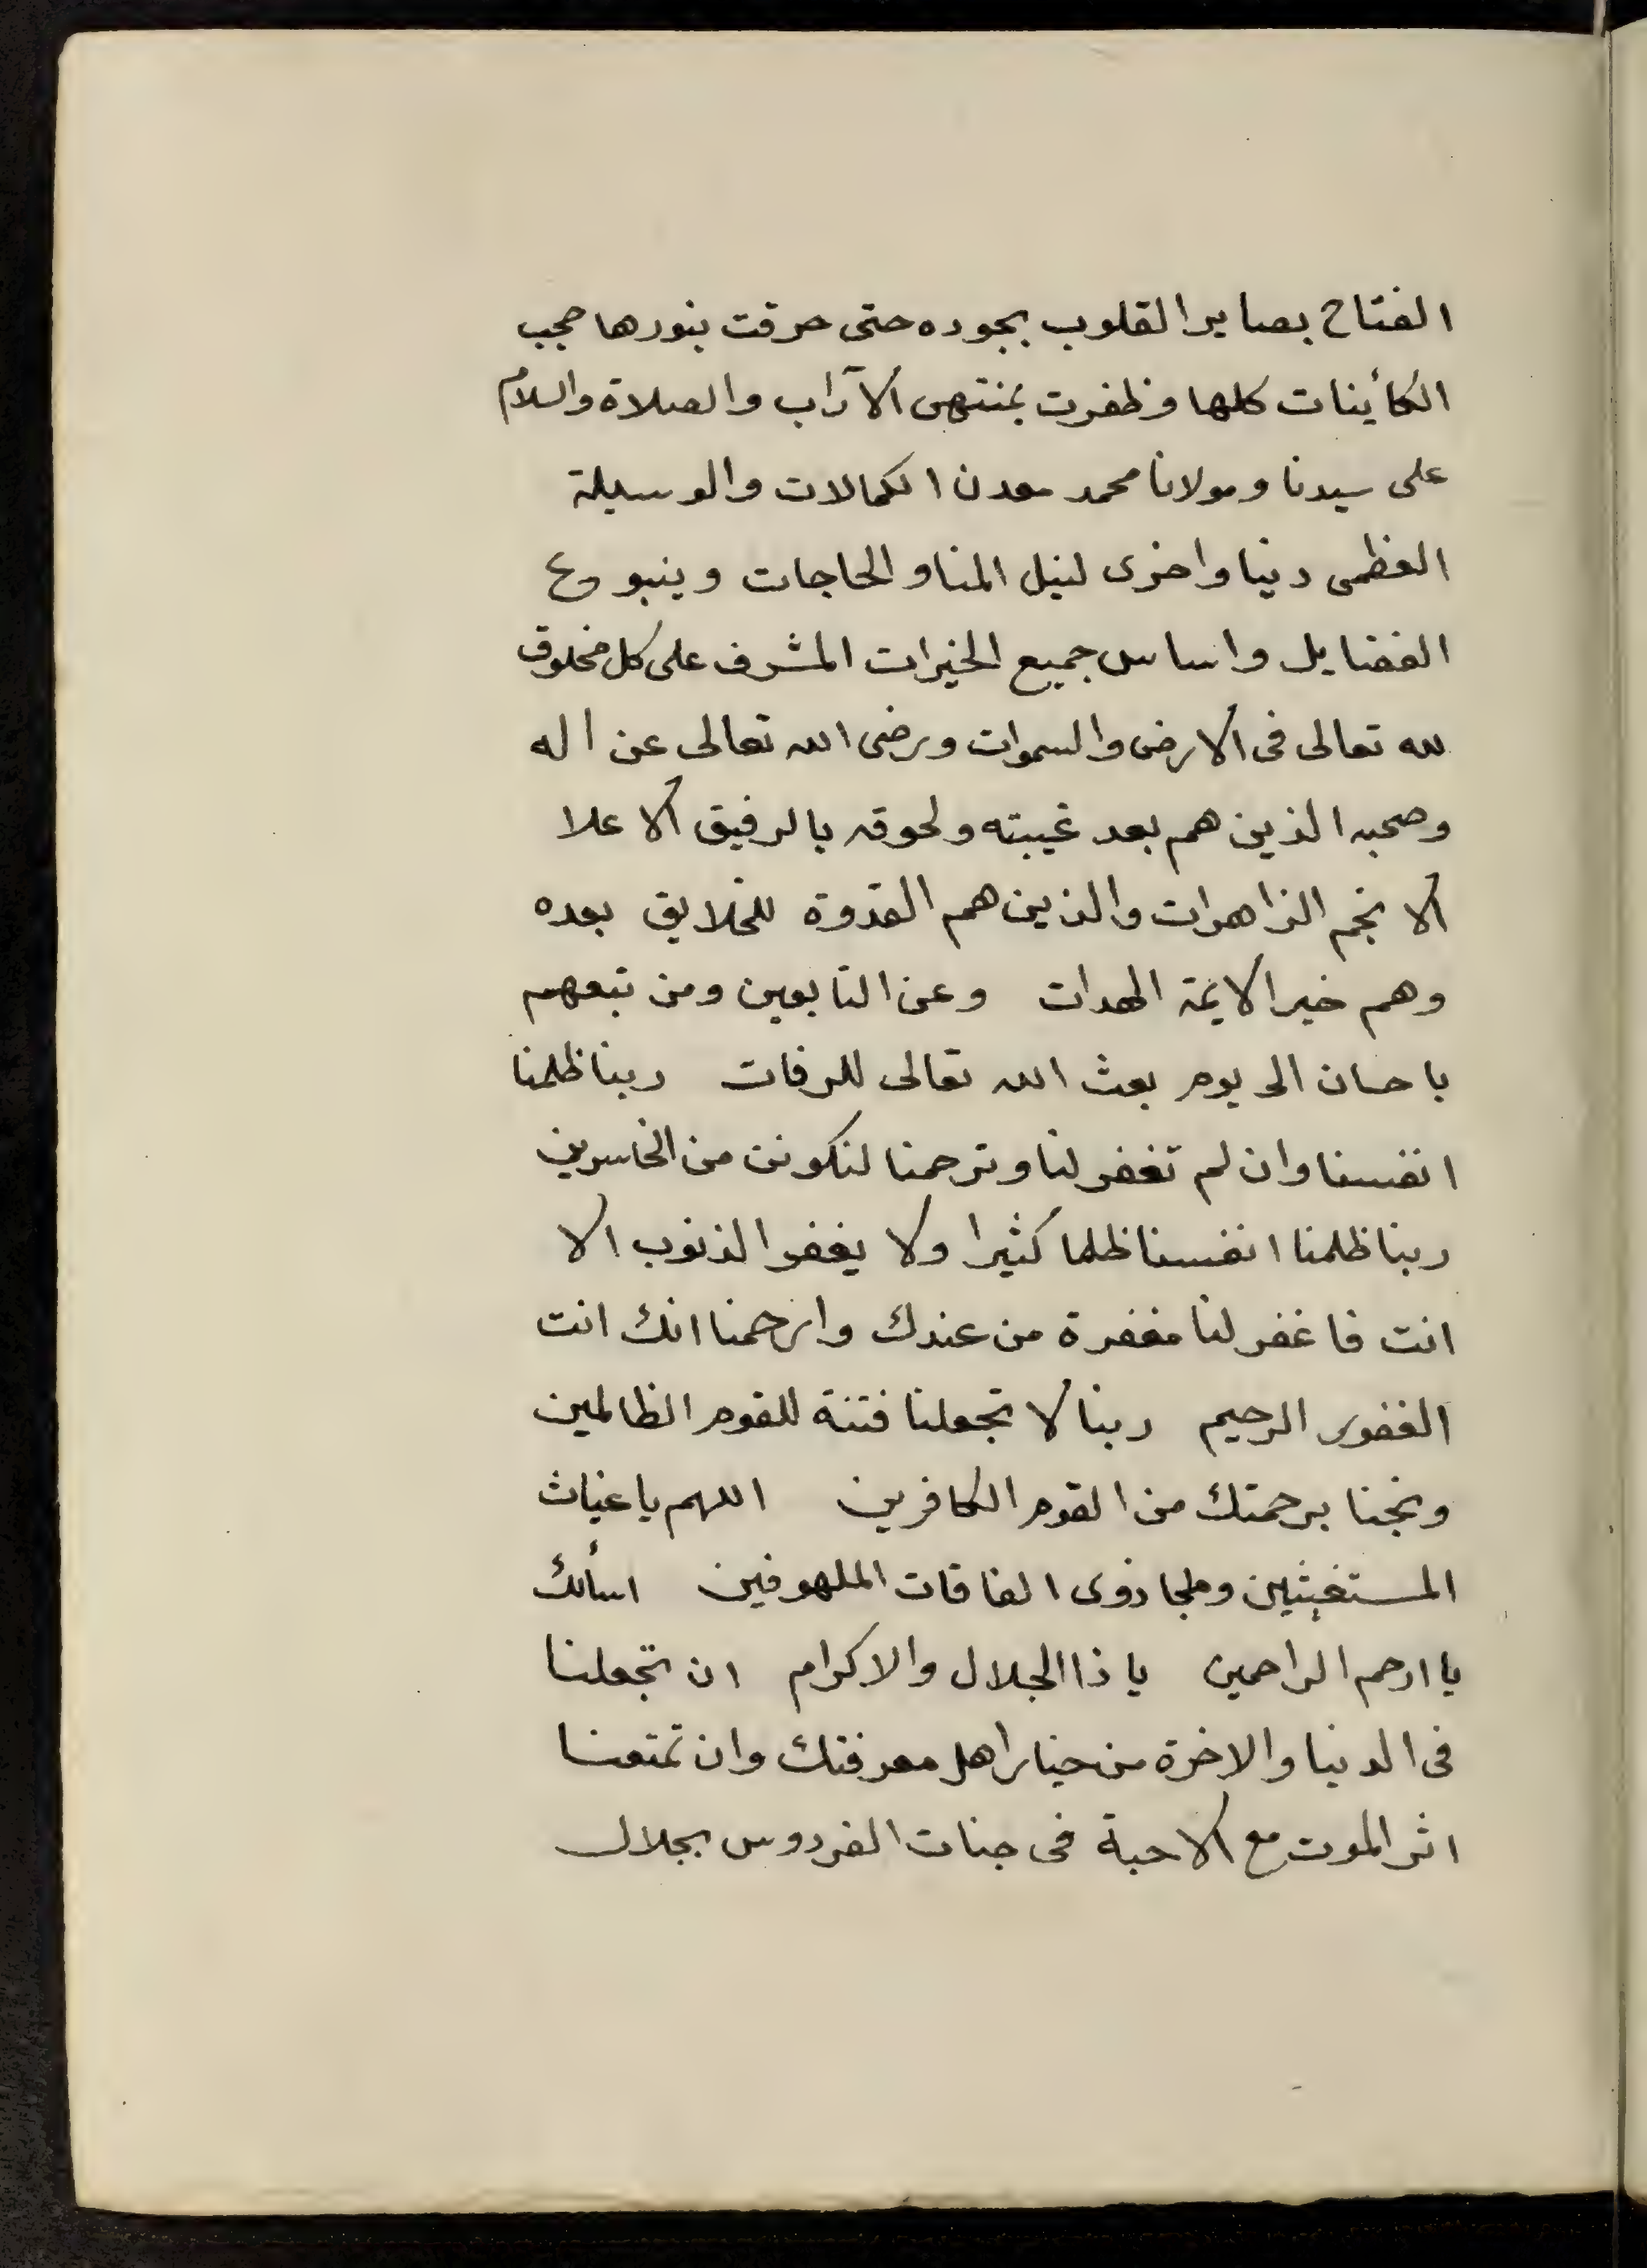 الفتاح بصاير القلوب بجوده حتى حرقت بنورها حجب
الكائنات كلها وظفرت بمنتهى الآراب والصلاة والسلام
على سيدنا ومولانا محمد معدن الكمالات والوسيلة
العظمى دنيا واخرى لنيل المنا والحاجات وينبوع
الفضايل واساس جميع الخيرات المشرف على كل مخلوق
لله تعالى فى الارض والسموات ورضى الله تعالى عن اله
وصحبه الذين هم بعد غيبته ولحوقه بالرفيق الاعلا
الانجم الزاهرات والذين هم القدوة للخلايق بعده
وهم خير الايمة الهدات وعن التابعين ومن تبعهم
باحسان الى يوم بعث الله تعالى للرفات ربنا ظلمنا
انفسنا وان لم تغفر لنا وترحمنا لنكونن من الخاسرين
ربنا ظلمنا انفسنا ظلما كثيرا ولا يغفر الذنوب الا
انت فاغفر لنا مغفرة من عندك وارحمنا انك انت
الغفور الرحيم ربنا لا تجعلنا فتنة للقوم الظالمين
ونجنا برحمتك من القوم الكافرين اللهم يا غياث
المستغيثين وملجا ذوى الفاقات الملهوفين اسألك
يا ارحم الراحمين يا ذا الجلال والاكرام ان تجعلنا
فى الدنيا والاخرة من خيار اهل معرفتك وان تمتعنا
اثر الموت مع الاحبة فى جنات الفردوس بجلال